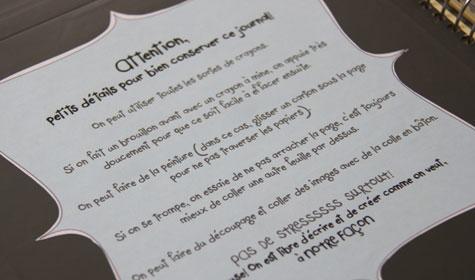 Attention,
petits détails pour bien conserver ce journal!
On peut utiliser toutes les sortes de crayons.
Si on fait un brouillon avant avec un crayon à mine, on appuie très
doucement pour que ce soit facile à effacer ensuite.
On peut faire de la peinture (dans ce cas, glisser un carton sous la page
pour ne pas traverser les papiers)
Si on se trompe, on essaie de ne pas arracher la page, c'est toujours
mieux de coller une autre feuille par dessus.
On peut faire du découpage et coller des images avec de la colle en bâton.
PAS DE STRESSSSSS SURTOUT!!
On est libre d'écrire et de créer comme on veut,
à NOTRE FAÇON